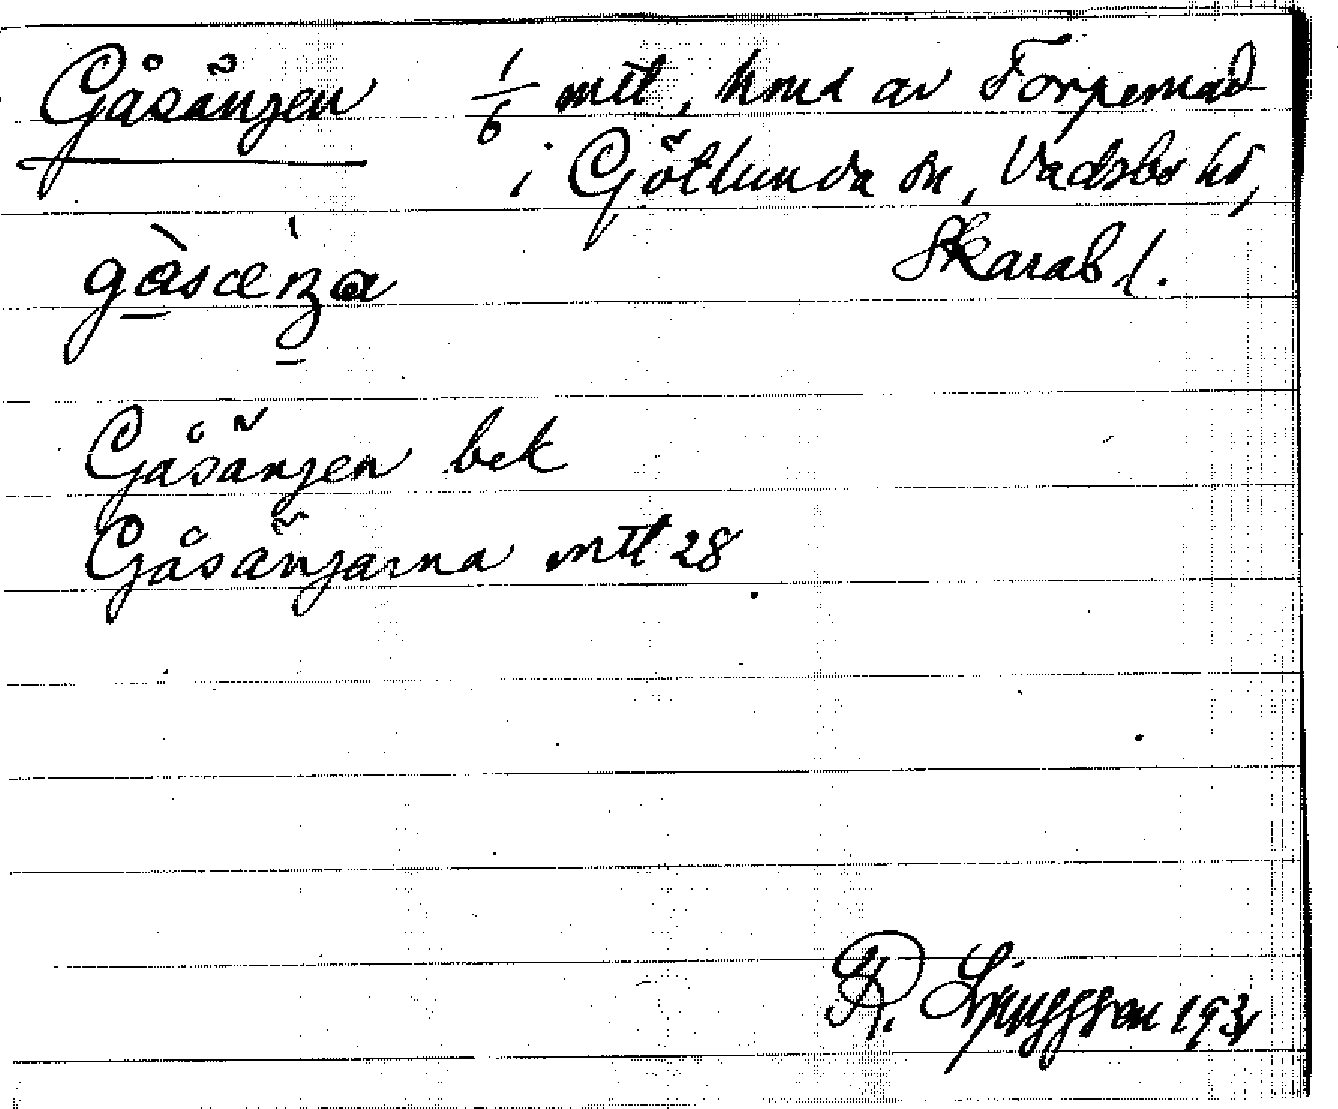 Gåsängen 1/6 mtl, hmd av Torpemad
i Götlunda sn, Vadsbo hd,
Skarab l.
Gåsängen bek
Gåsängarna mtl 28
R. Ljunggren 1931